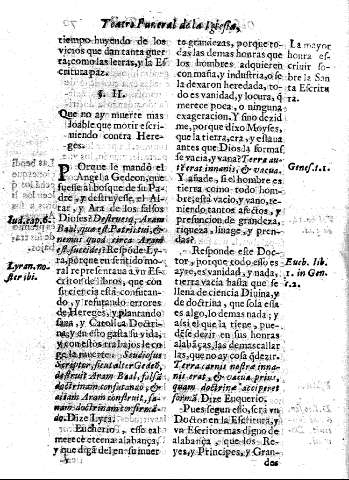 Teatro Funeral de la Iglesia,
tiempo huyendo de los
vicios que dan tanta guer
ra, como las letras, y la Es
critura paz.
§. II.
Que no ay muerte mas
loable que morir escri-
uiendo contra Here-
ges.
Porque le mandò el
Angel a Gedeon, que
fuesse al bosque de su Pa-
dre, y destruyesse, el Al-
tar, y Ara de los falsos
Dioses? Destrueig, Aram
Baal, quæ est Patris tui, &
nemus quod circa Aram
est succide; Responde Ly-
ra, porque en sentido mo-
ral representaua a vn Es-
critor de libros, que con
fuerça está consultan-
do, y refutando errores
de Hereges, y plantando
sana, y Catolica Doctri-
na, y en esto gasta su vida,
y con estos trabajos le co-
ge la muerte. Studiosus
Scriptor, sicut alter Gedeō,
destruit Aram Baal, falsā
doctrinam confutando, &
aliam Aram construit, sa-
nam doctrinam confirmā-
do. Dize Lyra.
Eucherio, esse tal
merece eterna alabança,
y que digā del en su muer
Iud. cap. 6.
Lyran. mo-
ster ibi.
te grandezas, porque to-
das las demas honras que
los hombres adquieren
con maña, y industria, o se
la dexaron heredada, to-
do es vanidad, y locura, q̄
merece poca, o ninguna
exageracion. Y sino dezid
me, porque dixo Moyses,
que la tierra, era, y estaua
antes que Dios la formas
se vacia, y vana? Terra au-
tē erat innanis, & vacua.
Y añade, si el hombre es
tierra como todo hom-
bre, està vacio, y vano, te-
niendo tantos afectos, y
presuncion de grandeza,
riqueza, linage, y pren-
das?
Responde esse Doc-
tor, porque todo esso es
ayre, es vanidad, y nada,
tierra vacia hasta que se
llena de ciencia Diuina, y
de doctrina, que sola essa
es algo, lo demas nada; y
assi el que la tiene, pue-
dese dezir en sus honras
alabāças, las demas callar
las, que no ay cosa q̄ dezir.
Terra carnis nostræ inna-
nis erat, & vacua prius,
quam doctrinæ acciperet
formā. Dize Euquerio.
Pues segun esso, serà vn
Doctor en la Escritura, y
vn Escritor mas digno de
alabança, que los Re-
yes, y Principes, y Gran-
dos
La mayor
honra es-
criuir so-
bre la San
ta Escritu
ra.
Genes. 1. 1.
Euch. lib.
1. in Gen.
c. 2.